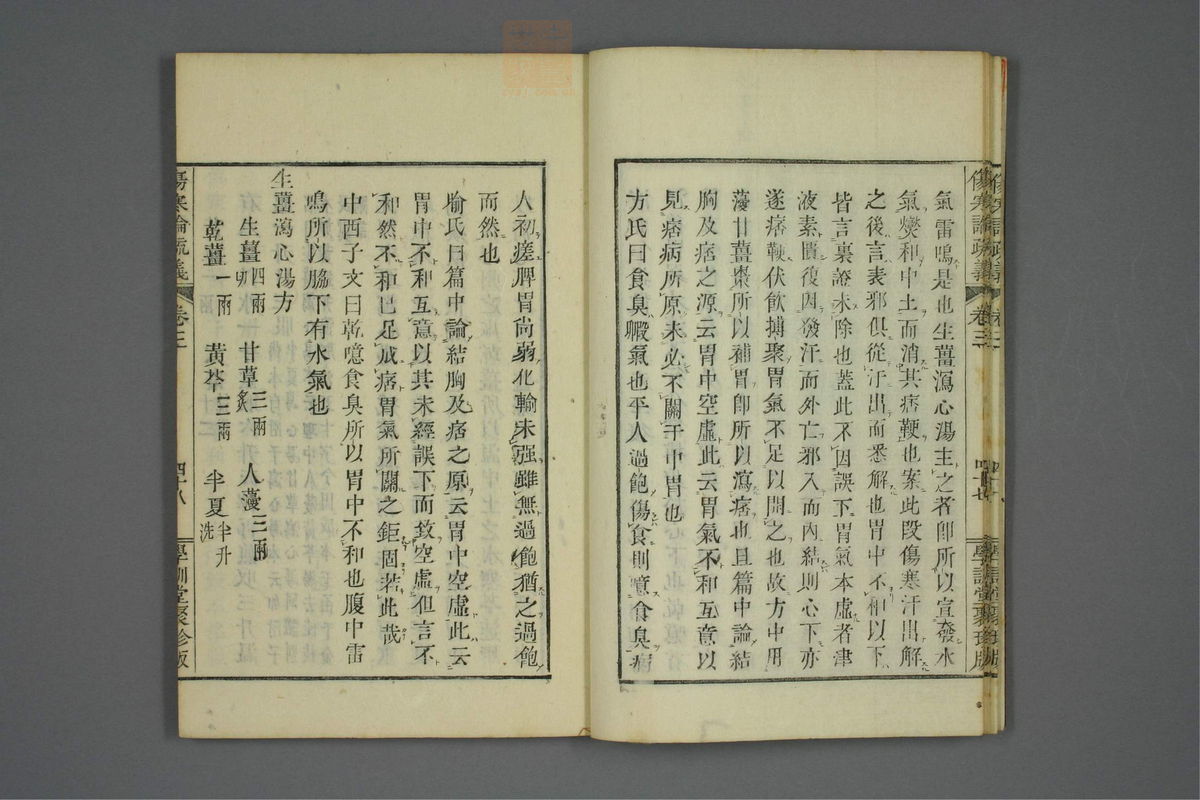 氣雷鳴是也生薑瀉心湯主之者卽所以宣發水
氣燮和中土而消其痞鞕也案此段傷寒汗出解
之後言表邪俱從汗出而悉解也胃中不和以下
皆言裏證未除也蓋此不因誤下胃氣本虛者津
液素匱復因發汗而外亡邪入而內結則心下亦
遂痞鞕伏飮搏聚胃氣不足以開之也故方中用
薓甘薑棗所以補胃卽所以瀉痞也且篇中論結
胸及痞之源云胃中空虛此云胃氣不和互意以
見痞病所原未必不關于中胃也
方氏曰食臭噯氣也平人過飽傷食則噫食臭病
傷寒論疏義
卷三
四十七
學訓堂聚珍版
人初瘥脾胃尚弱化輸未强雖無過飽猶之過飽
而然也
喻氏曰篇中論結胸及痞之原云胃中空虛此云
胃中不和互意以其未經誤下而致空虛但言不
和然不和已足成痞胃氣所關之鉅固若此哉
中西子文曰乾噫食臭所以胃中不和也腹中雷
鳴所以脇下有水氣也
生薑瀉心湯方
生薑四兩切 甘草三兩炙 人薓三兩
乾薑一兩 黃芩三兩 半夏半升洗
傷寒論疏義
卷三
四十八
學訓堂聚珍版